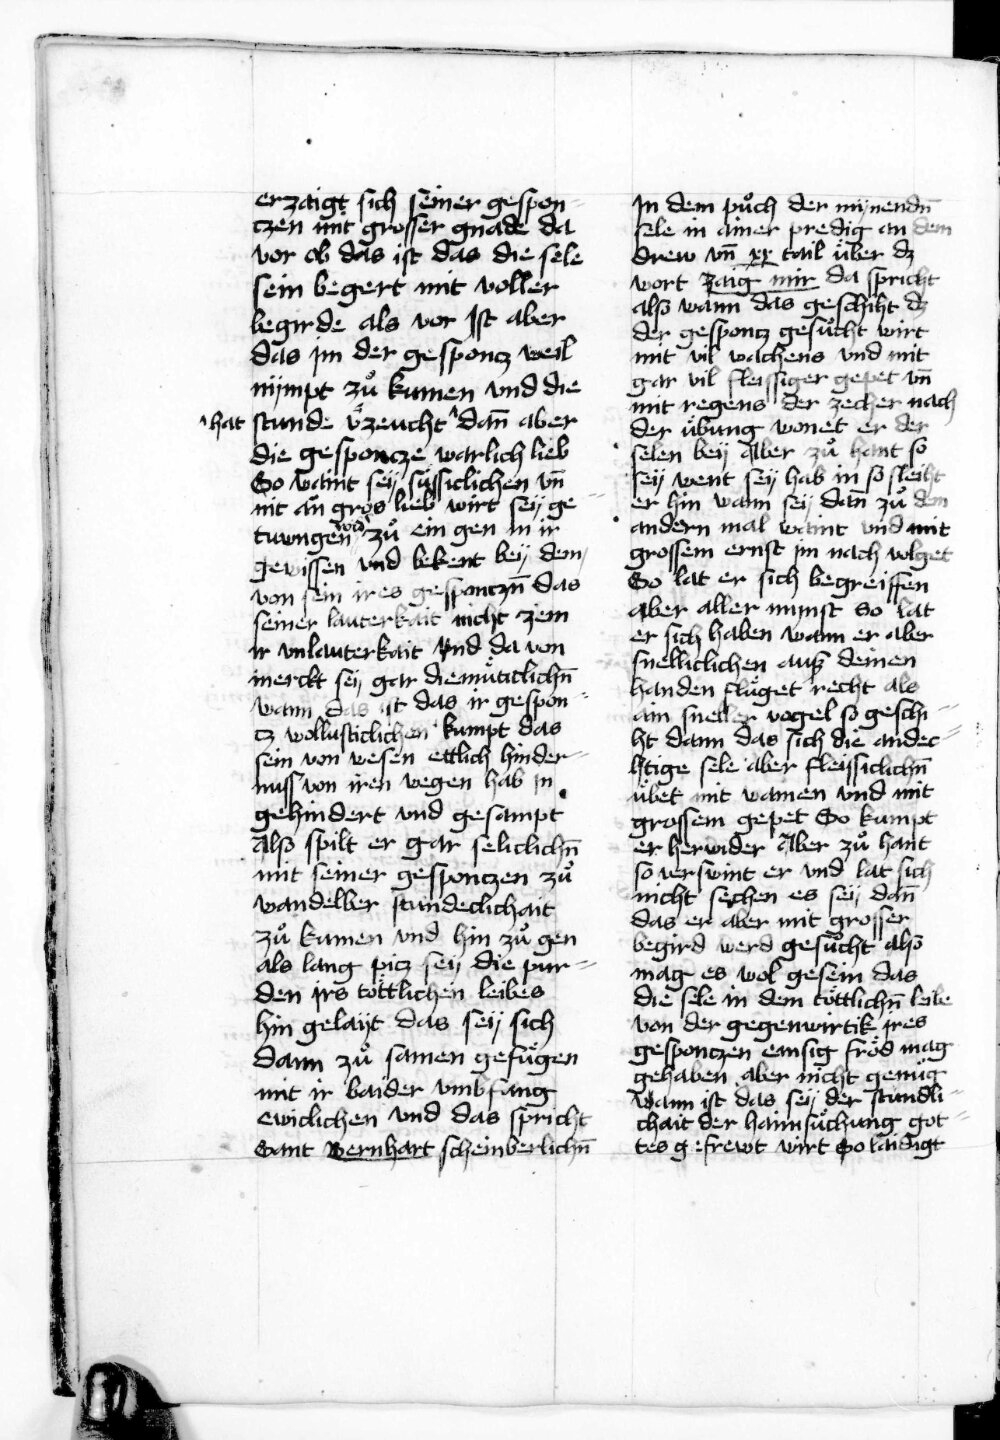 erzaigt sich seiner gespon-
czen mit grosser gnade da
vor ob das ist das die sele
sein begert mit voller
begirde als vor Ist aber
das im der gesponcz weil
nÿmpt zů kumen vnd die
hat stunde v̈zeucht dañ aber
die gesponcze warlich lieb
So waint seÿ süssiclichen vñ
nit an gros lieb wirt seÿ ge-
twungen zů ein gen in ir
gewissen vnd bekent beÿ dem
von sein ires gesponczñ das
seiner lauterkait nicht zem
ir vnlauterkait Vnd da von
merckt seÿ gar diemüticlichñ
wann das ist das ir gespon-
cz wollusticlichen kumpt das
sein von wesen ettlich hinder-
nuss von iren wegen hab in
gehindert vnd gesampt
Also spilt er gar seliclichñ
mit seiner gesponczen zů
wandelber stundeclichait
zů kumen vnd hin zů gen
als lang picz seÿ die pur-
den irs töttlichen leibes
hin gelaÿt das seÿ sich
dann zů samen gefügen
mit ir baider vmbfang
ewiclichen vnd das spricht
Sant Bernhart scheinberlichñ
In dem půch der mÿnendñ
sele in ainer predig an dem
drew vñ xx tail über dz
wort Zaig mir da spricht
also wann das geschiht dz
der gesponcz gesůcht wirt
mit vil wachens vnd mit
gar vil fleissiger gepet vñ
mit regens der zecher nach
der übung wonet er der
selen beÿ Aber zů hant so
seÿ went seÿ hab in so sleiht
er hin wann seÿ dan zů dem
andern mal waint vnd mit
grossem ernst im nach volget
So lat er sich begreiffen
aber aller mynst So lat
er sich haben wann er aber
snelliclichen ausz deinen
handen flüget recht als
ain sneller vogel so geschi-
ht dann das sich die andec-
htige sele aber fleissiclichñ
übet mit wainen vnd mit
grossem gepet So kumpt
er herwider Aber zů hant
so verswint er vnd lat sich
nicht sechen es seÿ dañ
das er aber mit grosser
begird werd gesůcht also
mag es wol gesein das
die sele in dem töttlichñ leibe
von der gegenwirtik ires
gesponczen emsig fröd mag
gehaben aber nicht genůg
wann ist das seÿ der stundli-
chait der haimsůchung got-
tes gefrewt wirt So laidigt